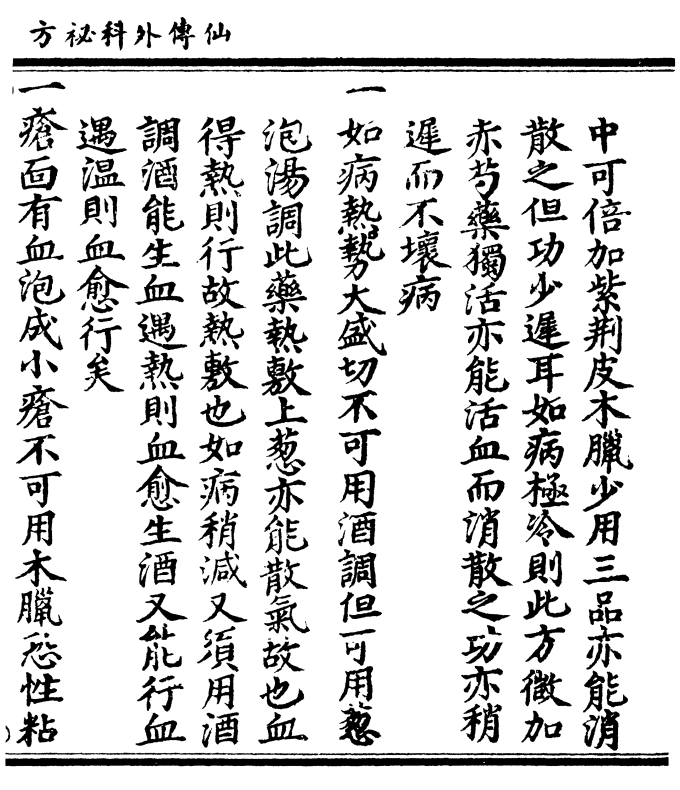 仙傳外科祕方
中可倍加紫荆皮木臘少用三品亦能消
散之但功少遲耳如病極冷則此方微加
赤芍藥獨活亦能活血而消散之功亦稍
遲而不壞病
一如病熱勢大盛切不可用酒調但可用葱
泡湯調此藥熱敷上葱亦能散氣故也血
得熱則行故熱敷也如病稍減又須用酒
調酒能生血遇熱則血愈生酒又能行血
遇温則血愈行矣
一瘡面有血泡成小瘡不可用木臘恐性粘